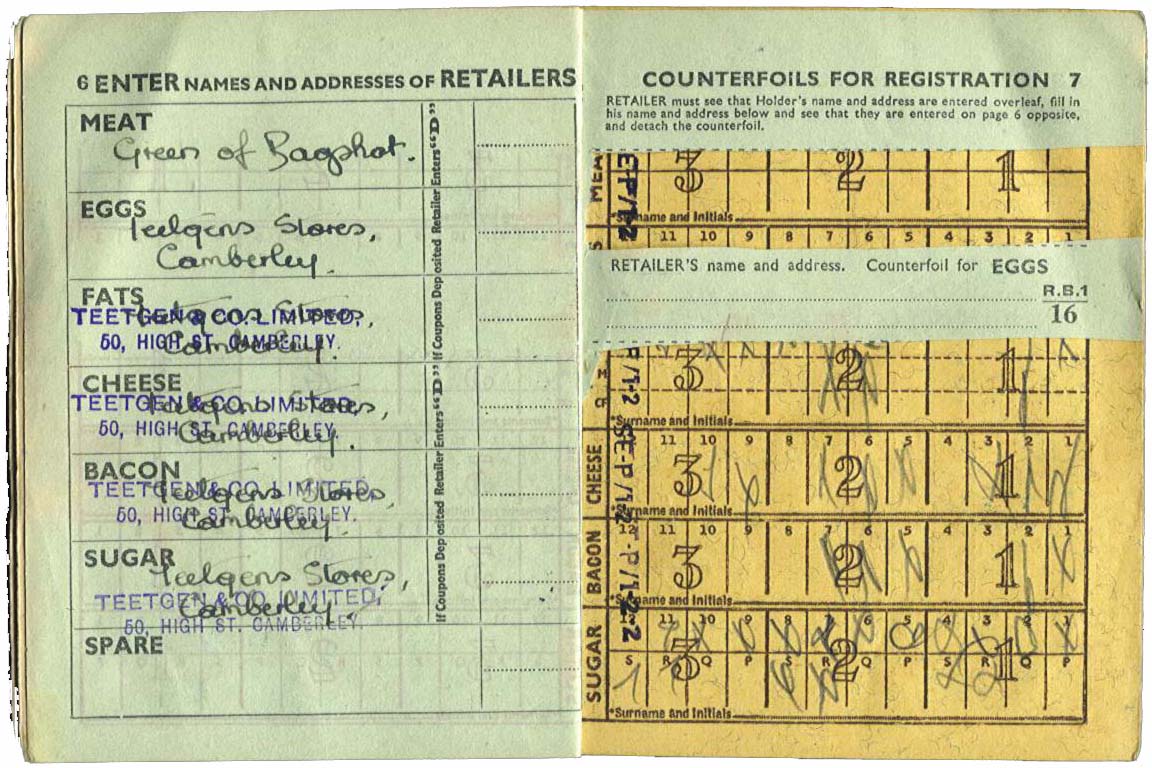 6 ENTER NAMES AND ADDRESSES OF RETAILERS
MEAT
Green of Bagshot.
EGGS
Teetgens Stores,
Camberley.
FATS
Teetgens Stores,
TEETGEN & CO. LIMITED,
50, HIGH ST. CAMBERLEY.
Camberley.
CHEESE
Teetgens Stores,
TEETGEN & CO. LIMITED,
50, HIGH ST. CAMBERLEY.
Camberley.
BACON
Teetgens Stores
TEETGEN & CO. LIMITED,
50, HIGH ST. CAMBERLEY.
Camberley.
SUGAR
Teetgens Stores,
TEETGEN & CO. LIMITED,
Camberley.
50, HIGH ST. CAMBERLEY.
SPARE
If Coupons Deposited Retailer Enters "D"
If Coupons Deposited Retailer Enters "D"
COUNTERFOILS FOR REGISTRATION 7
RETAILER must see that Holder's name and address are entered overleaf, fill in
his name and address below and see that they are entered on page 6 opposite,
and detach the counterfoil.
MEA
3 2 1
*Surname and Initials
11 10 9 8 7 6 5 4 3 2 1
RETAILER'S name and address. Counterfoil for EGGS
R.B.1
16
3 2 1
*Surname and Initials
CHEESE
11 10 9 8 7 6 5 4 3 2 1
3 2 1
*Surname and Initials
BACON
12 11 10 9 8 7 6 5 4 3 2 1
3 2 1
*Surname and Initials
SUGAR
11 10 9 8 7 6 5 4 3 2 1
3 2 1
S R Q P S R Q P S R Q P
*Surname and Initials